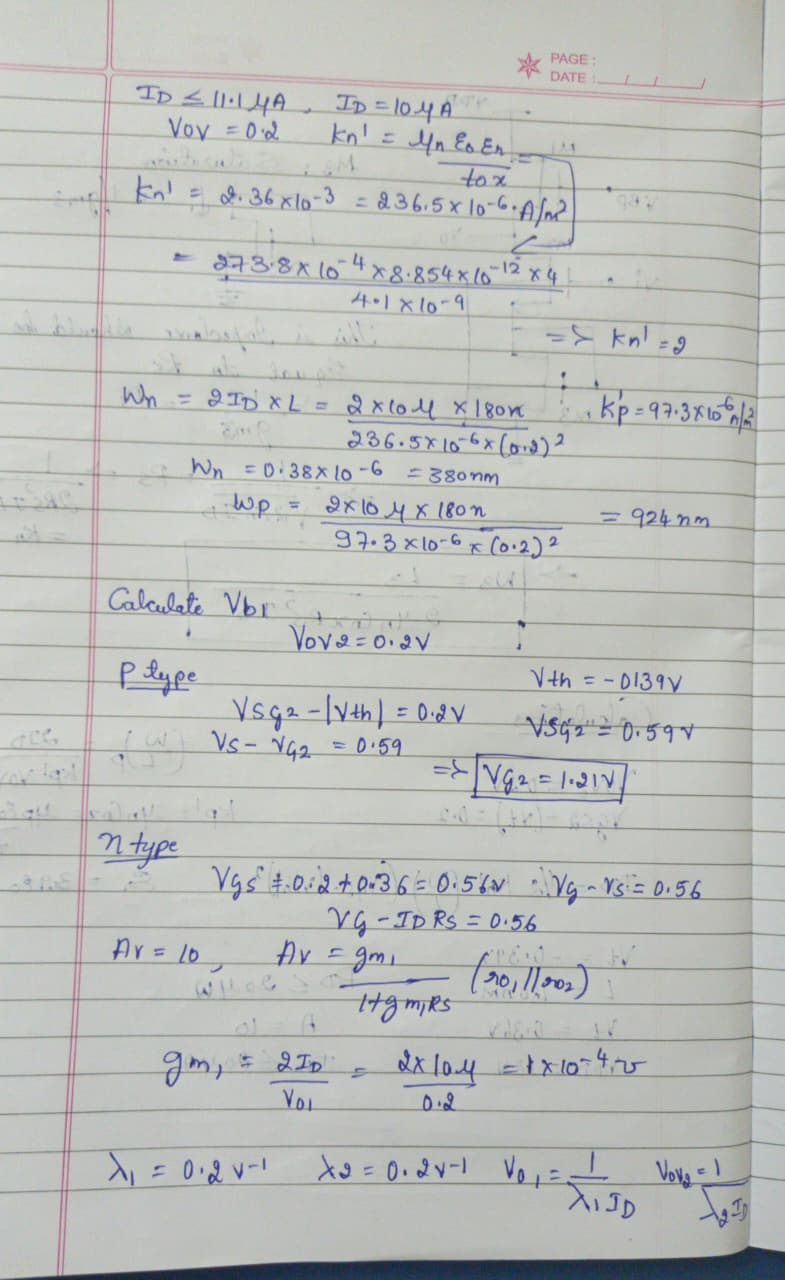 PAGE :
DATE : / / /
ID ≤ 11.1 μA , ID = 10 μA
VOV = 0.2 Kn' = μn ε0 εr / tox =
Kn' = 2.36 x 10-3 = 236.5 x 10-6 . A/m2
= 273.8 x 10-4 x 8.854 x 10-12 x 4 / 4.1 x 10-9
=> Kn' = 2
Wn = 2ID x L = 2 x 10 μ x 180n / 236.5 x 10-6 x (0.2)2 , Kp' = 97.3 x 10-6 A/m2
Wn = 0.38 x 10-6 = 380nm
Wp = 2 x 10 μ x 180n / 97.3 x 10-6 x (0.2)2 = 924 nm
Calculate Vb1
VOV2 = 0.2V
P type Vth = -0.39V
VSG2 - |Vth| = 0.2V VSG2 = 0.59V
VS - VG2 = 0.59
=> VG2 = 1.21V
n type
VGS = 0.2 + 0.36 = 0.56V VG - VS = 0.56
VG - ID RS = 0.56
Av = 10 , Av = gm1 / 1+gm1RS (ro1 || ro2)
gm1 = 2ID / VO1 = 2 x 10 μ / 0.2 = 1 x 10-4 ʊ
λ1 = 0.2 v-1 λ2 = 0.2 v-1 VO1 = 1 / λ1 ID VOV2 = 1 / λ2 ID